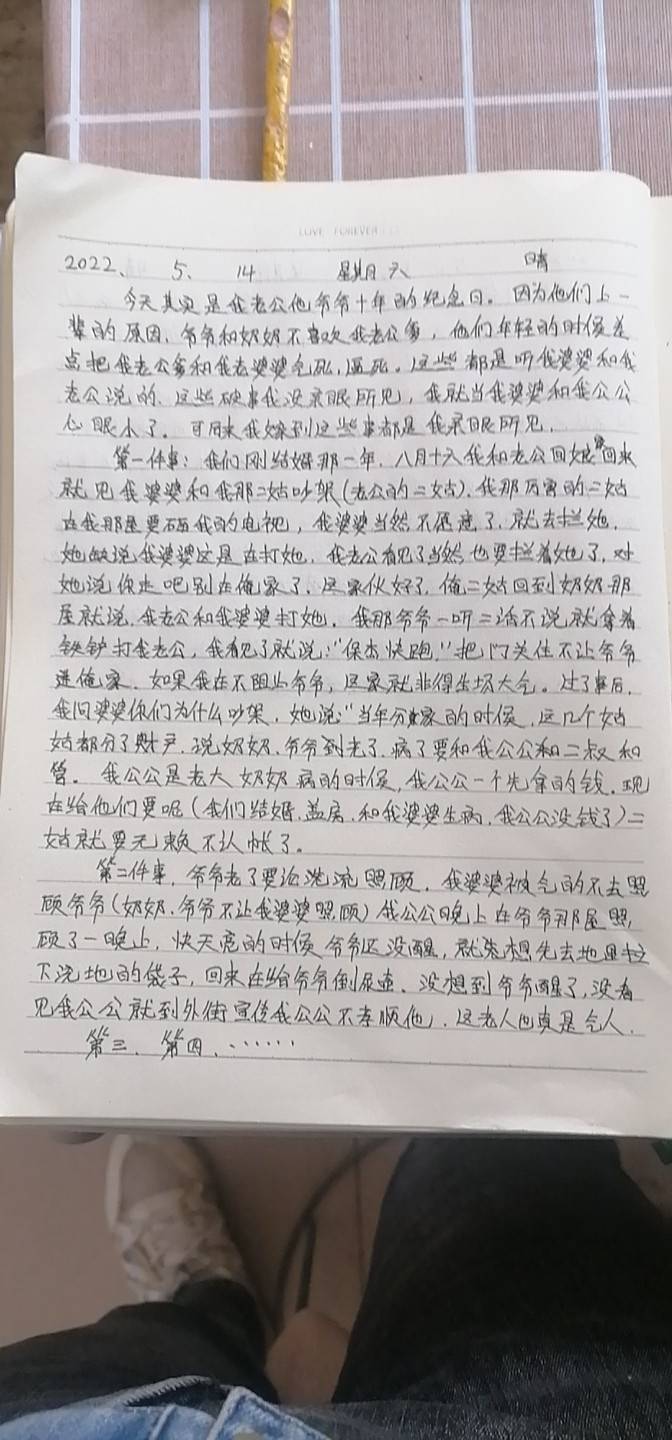 LOVE FOREVER
2022、 5、 14 星期六 晴
今天其实是我老公他爷爷十年的纪念日。因为他们上一
辈的原因,爷爷和奶奶不喜欢我老公爹,他们年轻的时候差
点把我老公爹和我老婆婆气死,逼死。这些都是听我婆婆和我
老公说的、这些破事我没亲眼所见,我就当我婆婆和我公公
心眼小了。可后来我嫁到这些事都是我亲眼所见.
第一件事:我们刚结婚那一年,八月十六我和老公回娘家回来
就见我婆婆和我那二姑吵架(老公的二姑).我那厉害的二姑
在我那屋要砸我的电视,我婆婆当然不愿意了.就去拦她.
她做说我婆婆这是在打她.我老公看见了当然也要拦着她了,对
她说你走吧别在俺家了.这家伙好了.俺二姑回到奶奶那
屋就说.我老公和我婆婆打她.我那爷爷一听二话不说就拿着
铁铲打我老公,我看见了就说:"保杰快跑,"把门关住不让爷爷
进俺家.如果我在不阻止爷爷,这家就非得生场大气。过了事后,
我问婆婆你们为什么吵架,她说"当年分家的时候,这几个姑
姑都分了财产.说奶奶.爷爷到老了.病了要和我公公和二叔和
管。我公公是老大 奶奶病的时候,我公公一个先拿的钱.现
在给他们要呢(我们结婚.盖房.和我婆婆生病.我公公没钱了)二
姑就耍无赖不认帐了。
第二件事,爷爷老了要论流照顾.我婆婆被气的不去照
顾爷爷(奶奶.爷爷不让我婆婆照顾)我公公晚上在爷爷那屋照
顾了一晚上,快天亮的时候爷爷还没醒,就想先去地里拉
下浇地的袋子,回来在给爷爷倒尿壶、没想到爷爷醒了,没看
见我公公就到外街宣传我公公不孝顺他,这老人也真是气人.
第三、第四、……